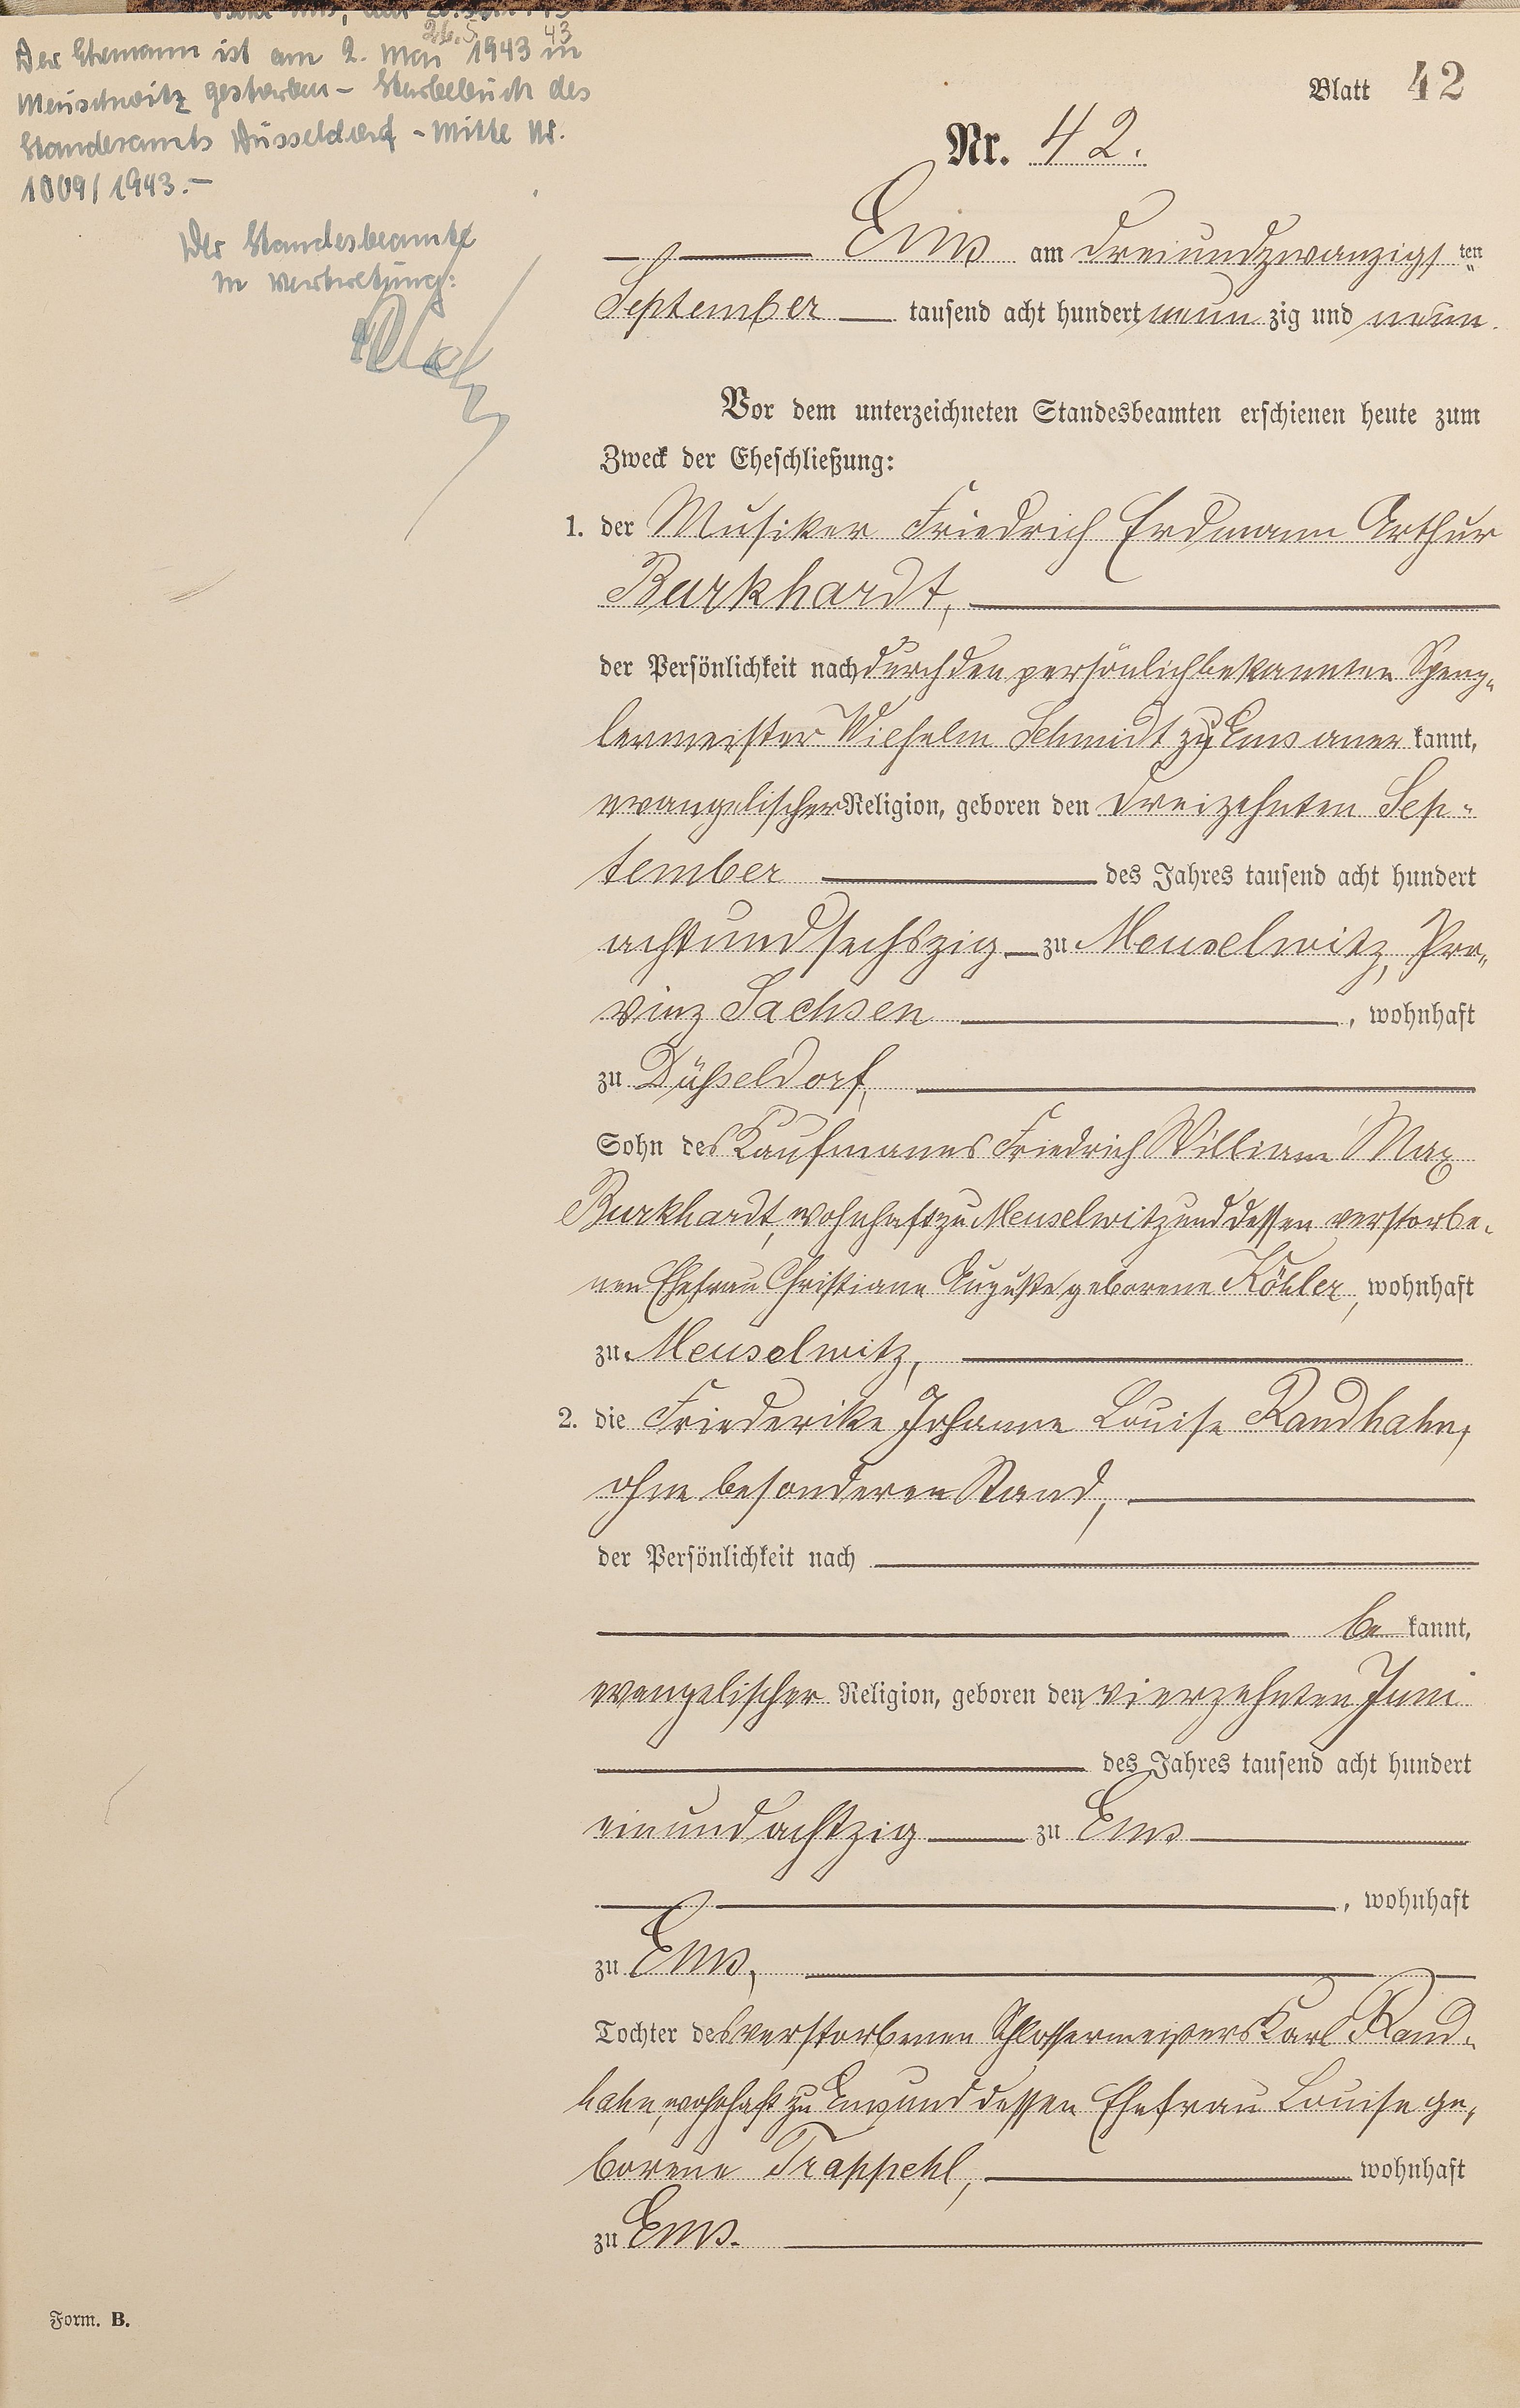 26.5.43
Der Ehemann ist am 2. Mai 1943 in
Meuschwitz gestorben - Sterbebuch des
Standesamts Düsseldorf - Mitte Nr.
1009/1943.-
Der Standesbeamte
In Vertretung:
Blatt 42
Nr. 42.
Ems am dreiundzwanzigsten
September tausend acht hundert neun zig und neun.
Vor dem unterzeichneten Standesbeamten erschienen heute zum
Zweck der Eheschließung:
1. der Musiker Friedrich Erdmann Arthur
Burkhardt,
der Persönlichkeit nach durch den persönlich bekannten Speng-
lermeister Wilhelm Schmidt zu Ems aner kannt,
evangelischer Religion, geboren den dreizehnten Sep-
tember des Jahres tausend acht hundert
achtundsechszig zu Meuselwitz, Pro-
vinz Sachsen, wohnhaft
zu Düsseldorf,
Sohn des Kaufmannes Friedrich William Max
Burkhardt, wohnhaft zu Meuselwitz und dessen verstorbe-
nen Ehefrau Christiane Auguste geborene Köhler, wohnhaft
zu Meuselwitz,
2. die Friederike Johanne Louise Randhahn,
ohne besonderen Stand,
der Persönlichkeit nach
be kannt,
evangelischer Religion, geboren den vierzehnten Juni
des Jahres tausend acht hundert
einundachtzig zu Ems
, wohnhaft
zu Ems,
Tochter des verstorbenen Schlossermeisters Karl Rand-
hahn, wohnhaft zu Ems und dessen Ehefrau Louise ge-
borene Trappehl, wohnhaft
zu Ems.
Form. B.